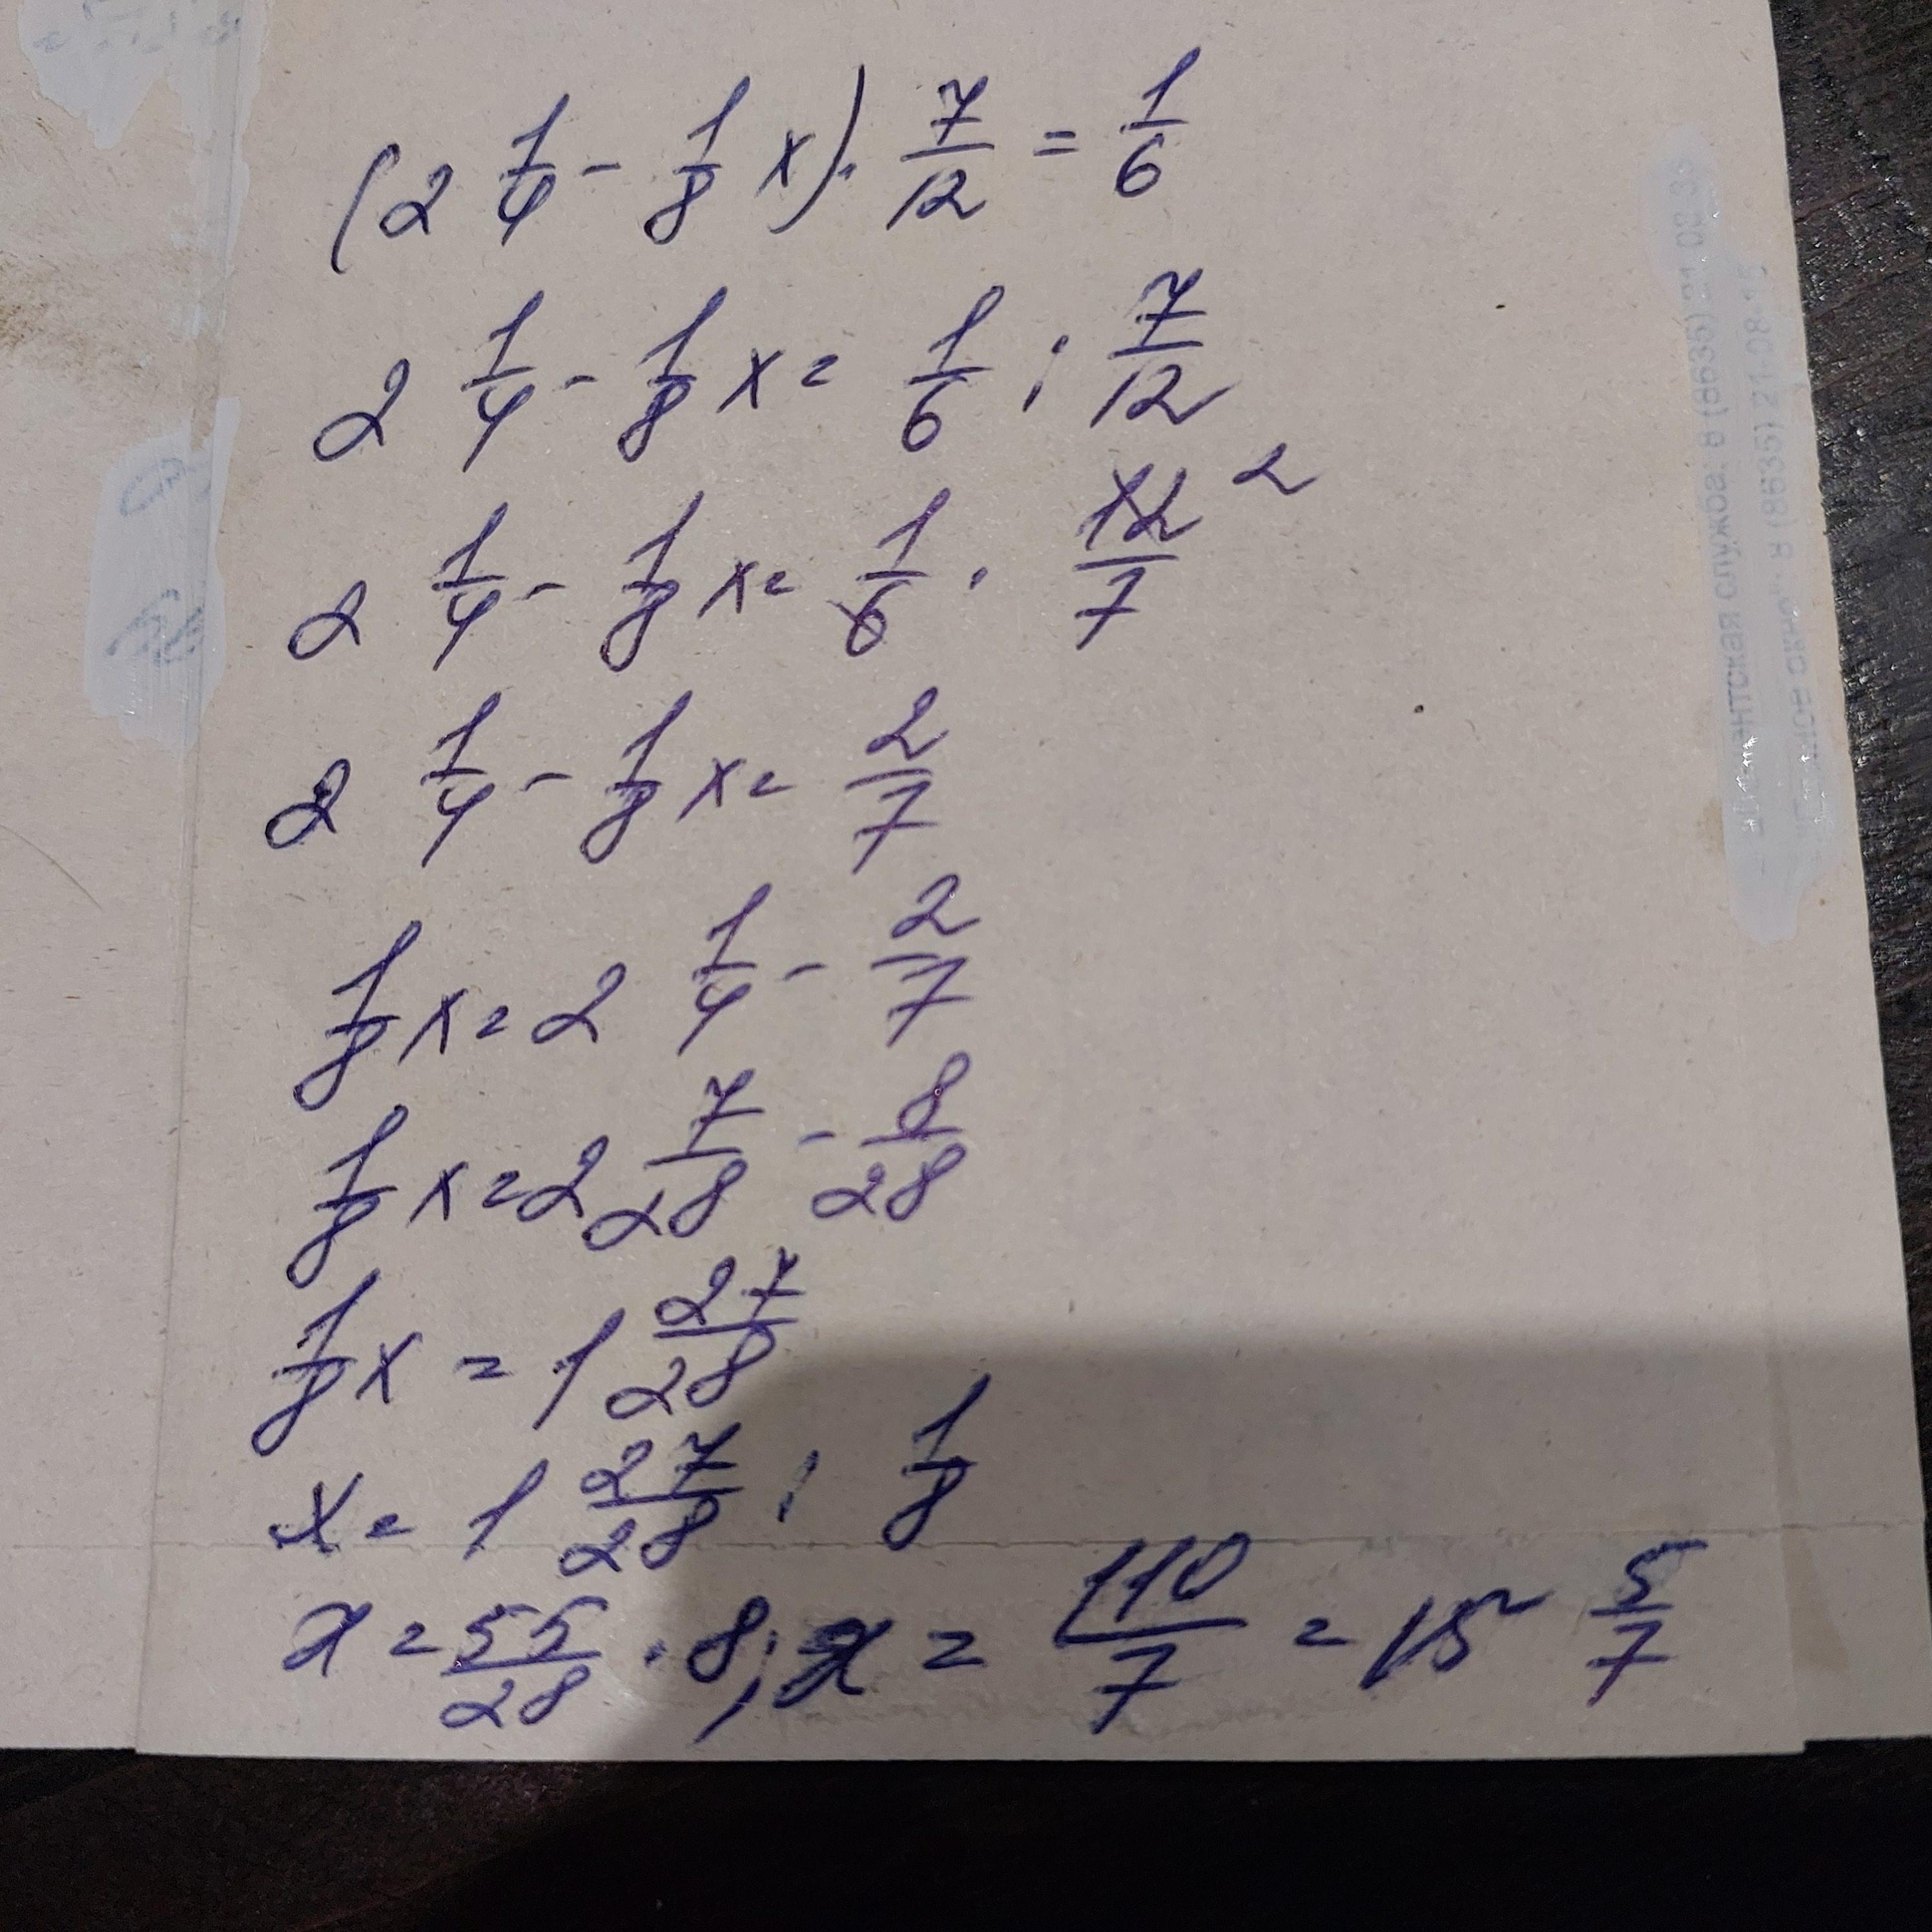 (2 1/4 - 1/8 x) · 7/12 = 1/6
2 1/4 - 1/8 x = 1/6 : 7/12
2 1/4 - 1/8 x = 1/6 · 12/7 2
2 1/4 - 1/8 x = 2/7
1/8 x = 2 1/4 - 2/7
1/8 x = 2 7/28 - 8/28
1/8 x = 1 27/28
x = 1 27/28 : 1/8
x = 55/28 · 8; x = 110/7 = 15 5/7
служба: 8 (8635) 21
8 (8635) 21-08-15